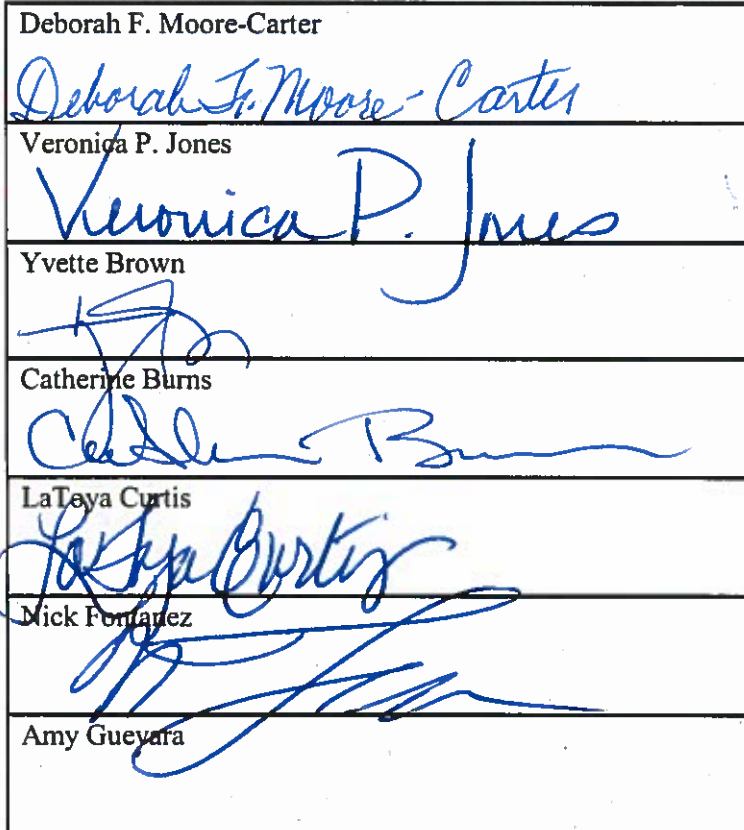 Deborah F. Moore-Carter
Deborah F. Moore-Carter
Veronica P. Jones
Veronica P. Jones
Yvette Brown
Catherine Burns
Catherine Burns
LaToya Curtis
LaToya Curtis
Nick Fontanez
Amy Guevara